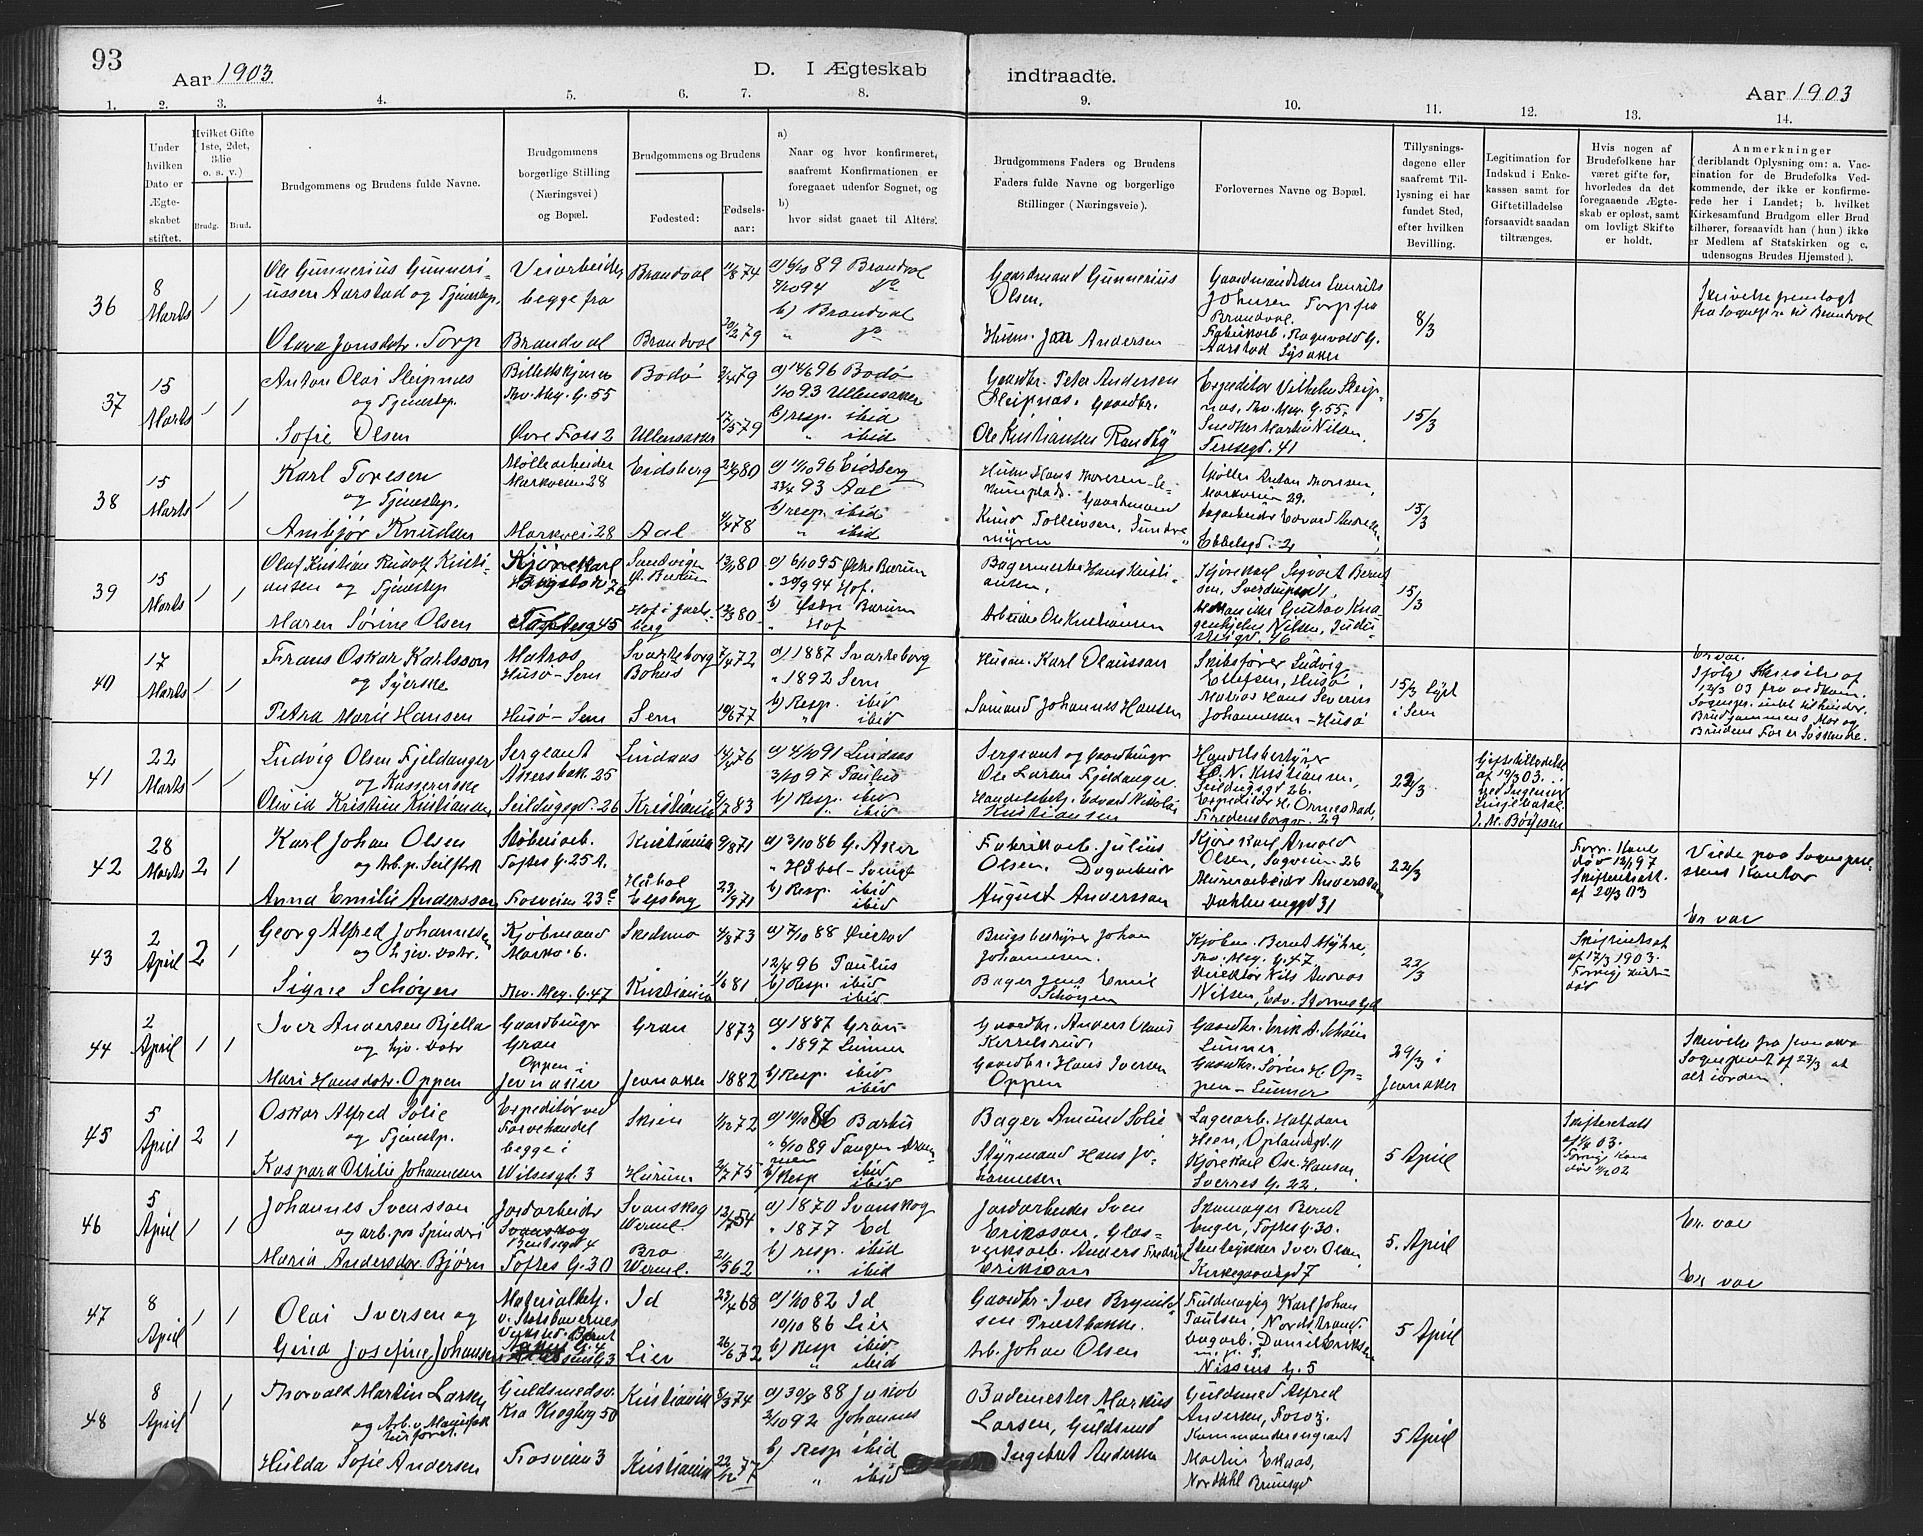 93
Aar 1903
D. I Ægteskab indtraadte.
Aar 1903
1. 2. 3. 4. 5. 6. 7. 8. 9. 10. 11. 12. 13. 14.
Under hvilken Dato er Ægteskabet stiftet.
Hvilket Gifte (1ste, 2det, 3die o. s. v.)
Brudg. Brud.
Brudgommens og Brudens fulde Navne.
Brudgommens borgerlige Stilling (Næringsvei) og Bopæl.
Brudgommens og Brudens
Fødested: Fødselsaar:
a) Naar og hvor konfirmeret, saafremt Konfirmationen er foregaaet udenfor Sognet, og
b) hvor sidst gaaet til Alters.
Brudgommens Faders og Brudens Faders fulde Navne og borgerlige Stillinger (Næringsveie).
Forlovernes Navne og Bopæl.
Tillysningsdagene eller saafremt Tillysning ei har fundet Sted, efter hvilken Bevilling.
Legitimation for Indskud i Enkekassen samt for Giftetilladelse forsaavidt saadan tiltrænges.
Hvis nogen af Brudefolkene har været gifte før, hvorledes da det foregaaende Ægteskab er opløst, samt om lovligt Skifte er holdt.
Anmerkninger (deriblandt Oplysning om: a. Vaccination for de Brudefolks Vedkommende, der ikke er konfirmerede her i Landet; b. hvilket Kirkesamfund Brudgom eller Brud tilhører, forsaavidt han (hun) ikke er Medlem af Statskirken og c. udensogns Brudes Hjemsted).
36
8 Marts
1 1
Ole Gunnerius Gunneriussen Aarstad og Tjenestep.
Olava Jonsdatr. Torp
Veiarbeider
begge fra
Brandval
Brandval
Brandval
11/8 74
20/2 79
a) 6/10 89 Brandval
7/10 94 do
b) Brandval
" do
Gaardmand Gunnerius Olsen.
Husm. Jon Andersen
Johnsen Torp fra Brandval.
Fabrikarb. Ragnvald G. Aarstad Lysaker
8/3
Skrivelse fremlagt fra Sognepr. til Brandval
37
15 Marts
1 1
Anton Olai Sleipnæs
og Tjenestep.
Sofie Olsen
Billedskjærer
Thv. Mey. G. 55
Øvre Foss 2
Bodø
Ullensaker
2/4 79
17/5 79
a) 14/6 96 Bodø
1/10 93 Ullensaker
b) resp. ibid
" ibid
Gaardbr. Peter Andersen Sleipnæs.
Gaardbr. Ole Kristiansen Randby
Expeditør Vilhelm Sleipnæs, Thv. Mey. G. 55.
Snedker Martin Nilsen,
Toresgd. 41
15/3
38
15 Marts
1 1
Karl Toresen
og Tjenestep.
Ambjør Knudsen
Møllearbeider
Markveien 28
Markvei. 28
Eidsberg
Aal
21/9 80
4/4 78
a) 11/10 96 Eidsberg
23/4 93 Aal
b) resp. ibid
" ibid
Husm. Hans Thoresen
Gaardmand
Knud Tollevsen, Sundre
Møller Anton Thoresen,
Markveien 29.
Dagarbeider Edvard Andresen,
Ebbelsgd. 2
15/3
39
15 Marts
1 1
Olaf Kristian Rudolf Kristiansen og Tjenestep.
Maren Sørine Olsen
Kjørekarl
Sandvigen
Ø. Bærum
Hof i Jarlsberg
13/11 80
12/3 80
a) 6/10 95 Østre Bærum
" 30/9 94 Hof.
b) Østre Bærum
" Hof
Bagermester Hans Kristiansen.
Arbeider Ole Kristiansen
Kjørekarl Sigvart Berntsen, Sverdrupsgd 1,
15/3
40
17 Marts
1 1
Frans Oskar Karlsson
og Syerske
Petra Marie Hansen
Matros
Husø - Sem
Husø - Sem
Svarteborg
Bohus
Sem
7/4 72
19/6 77
a) 1887 Svarteborg
" 1892 Sem
b) Resp. ibid
" ibid
Husm. Karl Olausson
Sømand Johannes Hansen
Skibsfører Ludvig Ellefsen, Husø
Matros Hans Severin Johannesen - Husø
15/3 lyst i Sem
Er vac.
Ifølge Skrivelse af 12/3 03 fra vedkom. Sognepr. intet til hinder.
Brudgommens Mor og Brudens Far er Søskende.
41
22 Marts
1 1
Ludvig Olsen Fjeldanger
og Kassererske
Olivia Kristine Kristiansen
Sergeant
Akersbak. 25
Seildugsgd. 26
Lindaas
Kristiania
14/4 76
9/7 83
a) 4/10 91 Lindaas
3/10 97 Paulus
b) Resp. ibid
" ibid
Sergeant og Gaardbruger
Ole Larsen Fjeldanger
Handelsbetj. Edvard Nikolai Kristiansen
Handelsbestyrer
O. N. Kristiansen,
Seildugsgd 26.
Expeditør H. Ormestad,
Fredensborgv. 29
22/3
Giftetilladelse af 19/3 03.
42
28 Marts
2 1
Karl Johan Olsen
og Arb. p. Seilfabr.
Anna Emilie Andersson
Støberiarb.
Toftes G. 25 A.
Fosveien 23 c
Kristiania
Håbol
Elfsborg
9/8 71
23/9 71
a) 3/10 86 G. Aker
" Håbol - Sverige
b) Resp. ibid
" ibid
Fabrikarb. Julius Olsen.
Dagarbeider
August Andersson
Kjørekarl Arnold Olsen, Sagveien 26
Murerarbeider Andersson
Dælenenggd 31
22/3
Forr. Kone død 12/1 97
Skifteratt. af 20/3 03
Viede paa Sogneprestens Kontor
Er vac
43
2 April
2 1
Georg Alfred Johannesen
og Hjv. Datr.
Signe Schøyen
Kjøbmand
Markv. 6.
Thv. Mey. G. 47
Skedsmo
Kristiania
4/8 73
1/6 81
a) 7/10 88 Øiestad
12/4 96 Paulus
b) Resp. ibid
" ibid
Brugsbestyrer Johan Johannesen.
Bager Jens Emil Schøyen
Kjøbm. Bernt Myhre,
Thv. Mey. G. 47.
Direktør Nils Andreas Nilsen, Edv. Storms Gd
22/3
Skifteratt af 17/3 1903.
Forrige Hustru død
44
2 April
1 1
Iver Andersen Bjella
og hjv. Datr
Mari Hansdatr. Oppen
Gaardbruger
Gran
Oppen i
Jevnaker
Gran
Jevnaker
1873
1882
a) 1887 Gran
" 1897 Lunner
b) Resp. ibid
ibid
Gaardbr. Anders Olaus Kjerrelsrud.
Gaardbr. Hans Iversen Oppen
Gaardbr. Erik A. Schøien
Lunner
Gaardbr. Søren H. Oppen - Lunner
29/3 i Jevnaker
Skrivelse fra Jevnaker Sogneprest af 23/3 at alt i orden.
45
5 April
2 1
Oskar Alfred Solie
og Tjenestep.
Kaspara Otilie Johannesen
Expeditør ved
Farvehandel
begge i
Wilsesgd. 3
Skien
Hurum
1/12 72
2/7 75
a) 10/10 86 Barbu
" 6/10 89 Tangen Drammen
b) Resp ibid
" ibid
Bager Amund Solie
Styrmand Hans Johannesen
Lagerarb. Halfdan
Hoen, Oplandsgd. 11
Kjørekarl Ole Hansen
Sverres G. 22.
5 April
46
5 April
1 1
Johannes Svensson
og arb. paa Spinderi
Maria Andersdotr. Bjørn
Jordarbeider
Svanskog
Bentsegd 4
Toftes G. 30
Svanskog
Werml.
Bro
Werml.
12/7 54
21/5 62
a) 1870 Svanskog
" 1877 Ed
b) resp. ibid
" ibid
Jordarbeider Sven
Eriksson, Glasverksarb. Anders Fredrik
Eriksson
Skomager Bernt
Enger, Toftes G. 30.
Stenhugger Iver Olsen
Kirkegaardsgd 7
5. April
Er vac
Er vac
47
8 April
1 1
Olai Iversen og
Gina Josefine Johansen
Materialbetj.
v. Statsbanernes
Verksted. Bernt
Id
Lier
23/4 68
26/6 72
a) 1/10 82 Id
10/10 86 Lier
b) Resp ibid
" ibid
Gaardbr. Iver Brynildsen Præstbakke.
Arb. Johan Olsen
Fuldmægtig Karl Johan
Paulsen, Nordstrand
Dagarb. Daniel Eriksen
Nissens G. 5
5 April
48
8 April
1 1
Thorvald Martin Larsen
Hulda Sofie Andersen
Guldsmedsv.
Fosveien 3
Kristiania
Kristiania
8/3 74
22/12 77
a) 30/9 88 Jakob
2/10 92 Johannes
b) Resp ibid
" ibid
Bademester Markus
Larsen, Guldsmed
Ingebret Andersen
Guldsmed Alfred
Andersen, Fosvj.
Kommandersergeant
Martin Eknæs,
5 April